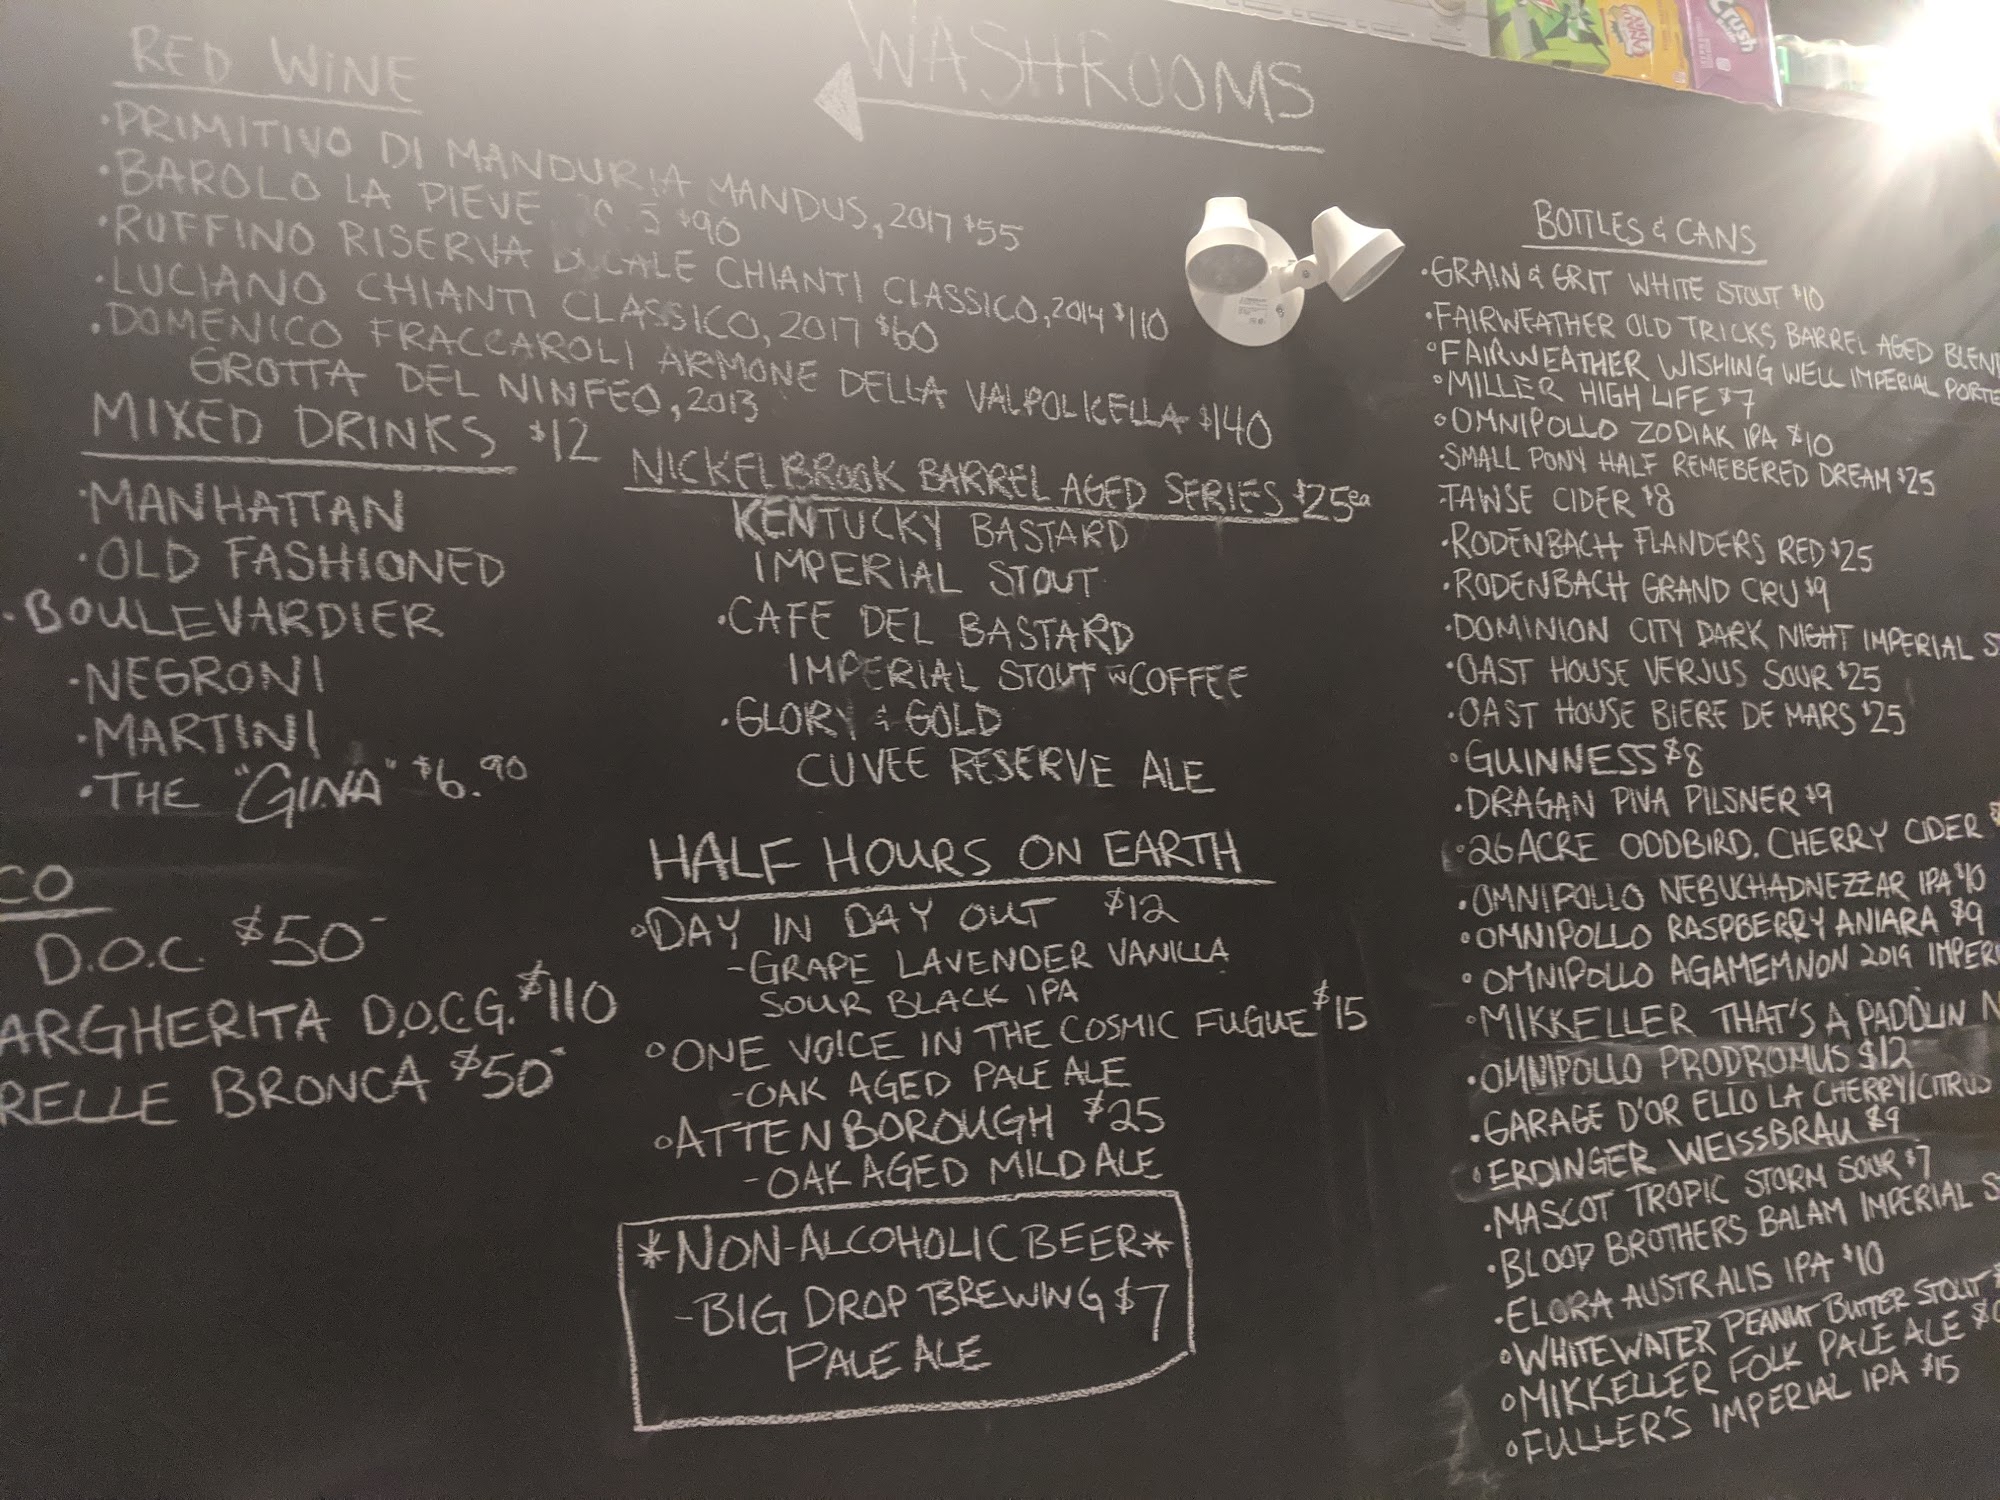 WASHROOMS
Crush
RED WINE
•PRIMITIVO DI MANDURIA MANDUS, 2017 $55
•BAROLO LA PIEVE $90
•RUFFINO RISERVA DUCALE CHIANTI CLASSICO, 2014 $110
•LUCIANO CHIANTI CLASSICO, 2017 $60
•DOMENICO FRACCAROLI ARMONE DELLA VALPOLICELLA $140
GROTTA DEL NINFEO, 2013
MIXED DRINKS $12
•MANHATTAN
•OLD FASHIONED
•BOULEVARDIER
•NEGRONI
•MARTINI
•THE "GINA" $6.90
CO
D.O.C. $50-
ARGHERITA D.O.C.G. $110
RELLE BRONCA $50-
NICKELBROOK BARREL AGED SERIES $25ea
KENTUCKY BASTARD
IMPERIAL STOUT
•CAFE DEL BASTARD
IMPERIAL STOUT W COFFEE
•GLORY & GOLD
CUVEE RESERVE ALE
HALF HOURS ON EARTH
•DAY IN DAY OUT $12
-GRAPE LAVENDER VANILLA
SOUR BLACK IPA
•ONE VOICE IN THE COSMIC FUGUE $15
-OAK AGED PALE ALE
•ATTENBOROUGH $25
-OAK AGED MILD ALE
*NON-ALCOHOLIC BEER*
-BIG DROP BREWING $7
PALE ALE
BOTTLES & CANS
•GRAIN & GRIT WHITE STOUT $10
•FAIRWEATHER OLD TRICKS BARREL AGED BLEN
•FAIRWEATHER WISHING WELL IMPERIAL PORTE
•MILLER HIGH LIFE $7
•OMNIPOLLO ZODIAK IPA $10
•SMALL PONY HALF REMEBERED DREAM $25
•TAWSE CIDER $8
•RODENBACH FLANDERS RED $25
•RODENBACH GRAND CRU $9
•DOMINION CITY DARK NIGHT IMPERIAL S
•OAST HOUSE VERJUS SOUR $25
•OAST HOUSE BIERE DE MARS $25
•GUINNESS $8
•DRAGAN PIVA PILSNER $9
•26 ACRE ODDBIRD. CHERRY CIDER $
•OMNIPOLLO NEBUCHADNEZZAR IPA $10
•OMNIPOLLO RASPBERRY ANIARA $9
•OMNIPOLLO AGAMEMNON 2019 IMPERI
•MIKKELLER THAT'S A PADDLIN N
•OMNIPOLLO PRODROMUS $12
•GARAGE D'OR ELLO LA CHERRY/CITRUS
•ERDINGER WEISSBRÄU $9
•MASCOT TROPIC STORM SOUR $7
•BLOOD BROTHERS BALAM IMPERIAL S
•ELORA AUSTRALIS IPA $10
•WHITEWATER PEANUT BUTTER STOUT $
•MIKKELLER FOLK PALE ALE
•FULLER'S IMPERIAL IPA $15